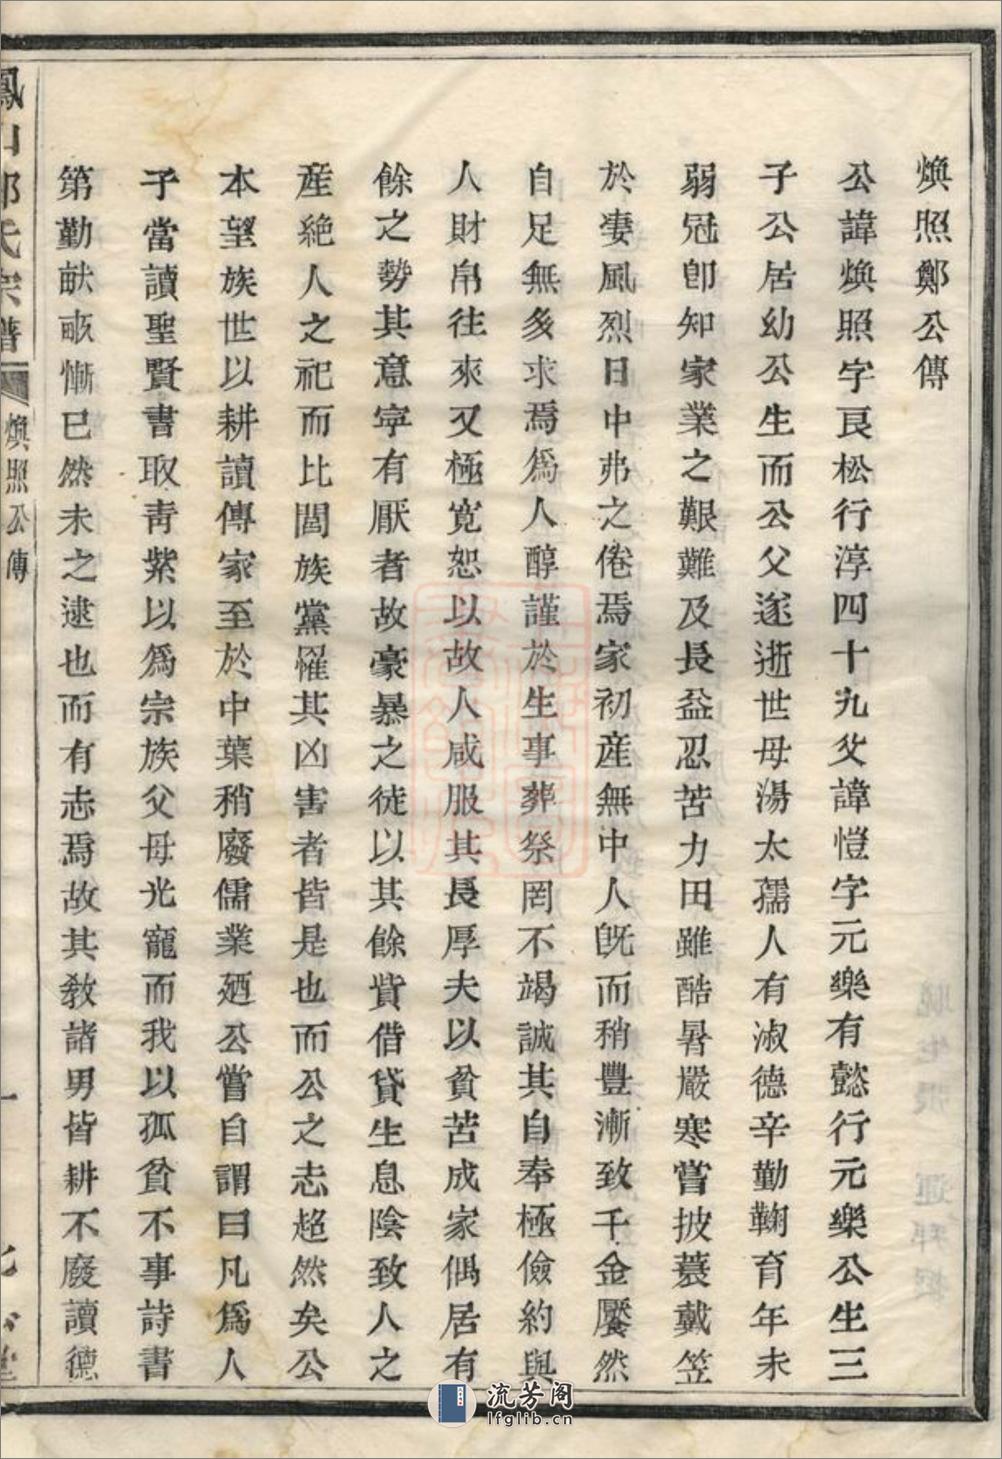 煥照鄭公傳
公諱煥照字良松行淳四十九父諱愷字元樂有懿行元樂公生三
子公居幼公生而公父遂逝世母湯太孺人有淑德辛勤鞠育年未
弱冠卽知家業之艱難及長益忍苦力田雖酷暑嚴寒嘗披蓑戴笠
於凄風烈日中弗之倦焉家初產無中人旣而稍豐漸致千金饜然
自足無多求焉爲人醇謹於生事葬祭罔不竭誠其自奉極儉約與
人財帛往來又極寬恕以故人咸服其長厚夫以貧苦成家偶居有
餘之勢其意寧有厭者故豪暴之徒以其餘貲借貸生息陰致人之
產絕人之祀而比閭族黨罹其凶害者皆是也而公之志超然矣公
本望族世以耕讀傳家至於中葉稍廢儒業廼公嘗自謂曰凡爲人
子當讀聖賢書取靑紫以爲宗族父母光寵而我以孤貧不事詩書
第勤畎畝慚已然未之逮也而有志焉故其敎諸男皆耕不廢讀德
鳳山鄭氏宗譜
煥照公傳
一
流芳阁
lfglib.cn